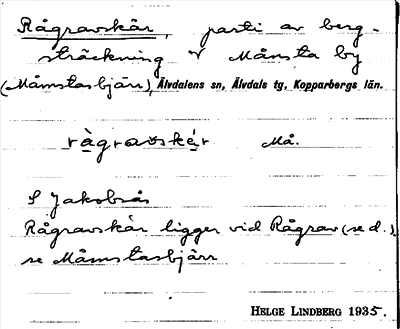 Rågravskär, parti av berg-
sträckning V Månsta by
(Månstasbjärr), Älvdalens sn, Älvdals tg, Kopparbergs län.
rågravskär Må.
S Jakobsås
Rågravskär ligger vid Rågrav (se d.)
se Månstasbjärr
HELGE LINDBERG 1935.